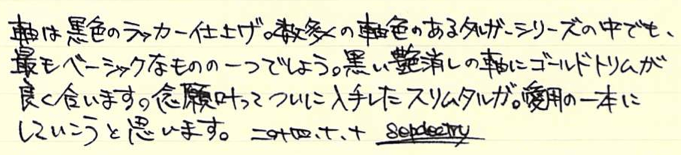 軸は黒色のラッカー仕上げ。数多くの軸色のあるタルガーシリーズの中でも、
最もベーシックなものの一つでしょう。黒い艶消しの軸にゴールドトリムが
良く合います。念願叶ってついに入手したスリムタルガ。愛用の一本に
していこうと思います。